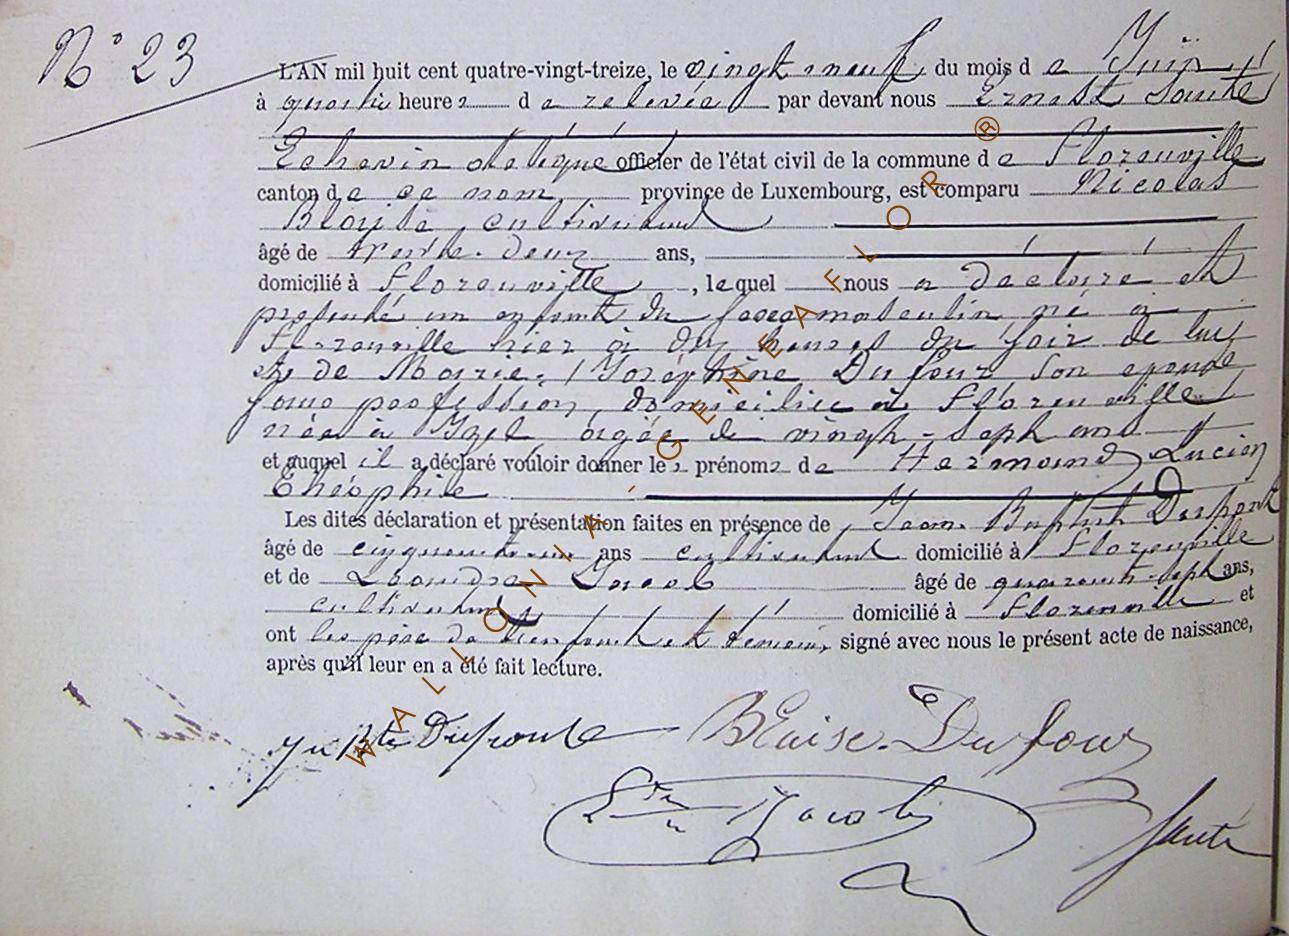 N° 23
L'AN mil huit cent quatre-vingt-treize, le vingt neuf du mois de Juin
à quatre heures de relevée par devant nous Ernest Santé
Echevin délégué officier de l'état civil de la commune de Florenville
canton de ce nom province de Luxembourg, est comparu Nicolas
Blaise cultivateur
âgé de trente-deux ans,
domicilié à Florenville, lequel nous a déclaré et
présenté un enfant du sexe masculin né à
Florenville hier à dix heures du soir de lui
et de Marie Joséphine Dufour son épouse
sans profession, domiciliée à Florenville
née à Izel âgée de vingt-sept ans
et auquel il a déclaré vouloir donner les prénoms de Hermand Lucien
Théophile
Les dites déclaration et présentation faites en présence de Jean Baptiste
âgé de ans cultivateur domicilié à Florenville
et de Léandre Jacob âgé de quarante-sept ans,
cultivateur domicilié à Florenville et
ont les père de l'enfant et témoins signé avec nous le présent acte de naissance,
après qu'il leur en a été fait lecture.
Blaise-Dufour
Jacob
Santé
WALLONIA-GENEAFLOR ®